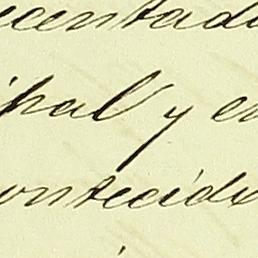 centad
ipal y en
ontecido